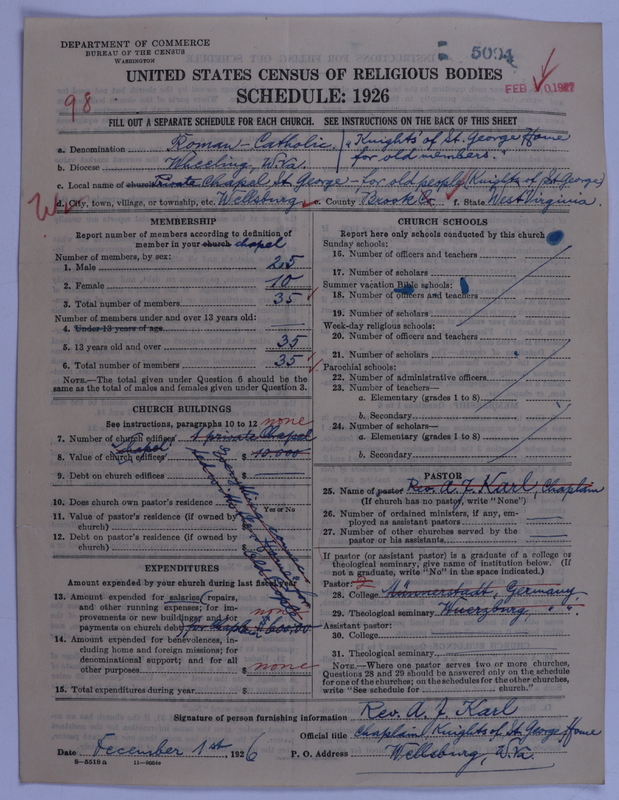 DEPARTMENT OF COMMERCE
BUREAU OF THE CENSUS
WASHINGTON
5094
UNITED STATES CENSUS OF RELIGIOUS BODIES
FEB 1927
SCHEDULE: 1926
98
FILL OUT A SEPARATE SCHEDULE FOR EACH CHURCH. SEE INSTRUCTIONS ON THE BACK OF THIS SHEET
a. Denomination Roman-Catholic. Knights of St. George Home
b. Diocese Wheeling, W.Va. for old members."
c. Local name of church Private Chapel St. George - for old people (Knights of St. George)
d. City, town, village, or township, etc. Wellsburg e. County Brook Co f. State West Virginia.
MEMBERSHIP
Report number of members according to definition of
member in your church chapel
Number of members, by sex:
1. Male 25
2. Female 10
3. Total number of members 35
Number of members under and over 13 years old:
4. Under 13 years of age
5. 13 years old and over 35
6. Total number of members 35
NOTE.—The total given under Question 6 should be
same as the total of males and females given under Question 3.
CHURCH BUILDINGS
See instructions, paragraphs 10 to 12 none
7. Number of church edifices 1 private Chapel
Chapel
8. Value of church edifices $ 10.000
9. Debt on church edifices $
10. Does church own pastor's residence
Yes or No
11. Value of pastor's residence (if owned by
church) $
12. Debt on pastor's residence (if owned by
church) $
EXPENDITURES
Amount expended by your church during last fiscal year
13. Amount expended for salaries, repairs,
and other running expenses; for im-
provements or new buildings; and for none
payments on church debt for Chaplain $ 600.00
14. Amount expended for benevolences, in-
cluding home and foreign missions; for
denominational support; and for all
other purposes $ none
15. Total expenditures during year $
CHURCH SCHOOLS
Report here only schools conducted by this church
Sunday schools:
16. Number of officers and teachers
17. Number of scholars
Summer vacation Bible schools:
18. Number of officers and teachers
19. Number of scholars
Week-day religious schools:
20. Number of officers and teachers
21. Number of scholars
Parochial schools:
22. Number of administrative officers
23. Number of teachers—
a. Elementary (grades 1 to 8)
b. Secondary
24. Number of scholars—
a. Elementary (grades 1 to 8)
b. Secondary
PASTOR
25. Name of pastor Rev. A. J. Karl, Chaplain
(If church has no pastor, write "None")
26. Number of ordained ministers, if any, em-
ployed as assistant pastors
27. Number of other churches served by the
pastor or his assistants
If pastor (or assistant pastor) is a graduate of a college or
theological seminary, give name of institution below. (If
not a graduate, write "No" in the space indicated.)
Pastor:
28. College Münnerstadt, Germany
29. Theological seminary Wuerzburg, " "
Assistant pastor:
30. College
31. Theological seminary
NOTE.—Where one pastor serves two or more churches,
Questions 28 and 29 should be answered only on the schedule
for one of the churches; on the schedules for the other churches,
write "See schedule for church."
Signature of person furnishing information Rev. A. J. Karl
Official title Chaplain, Knights of St. George Home
Date December 1st, 1926 P. O. Address Wellsburg, W.Va.
8—5518 a